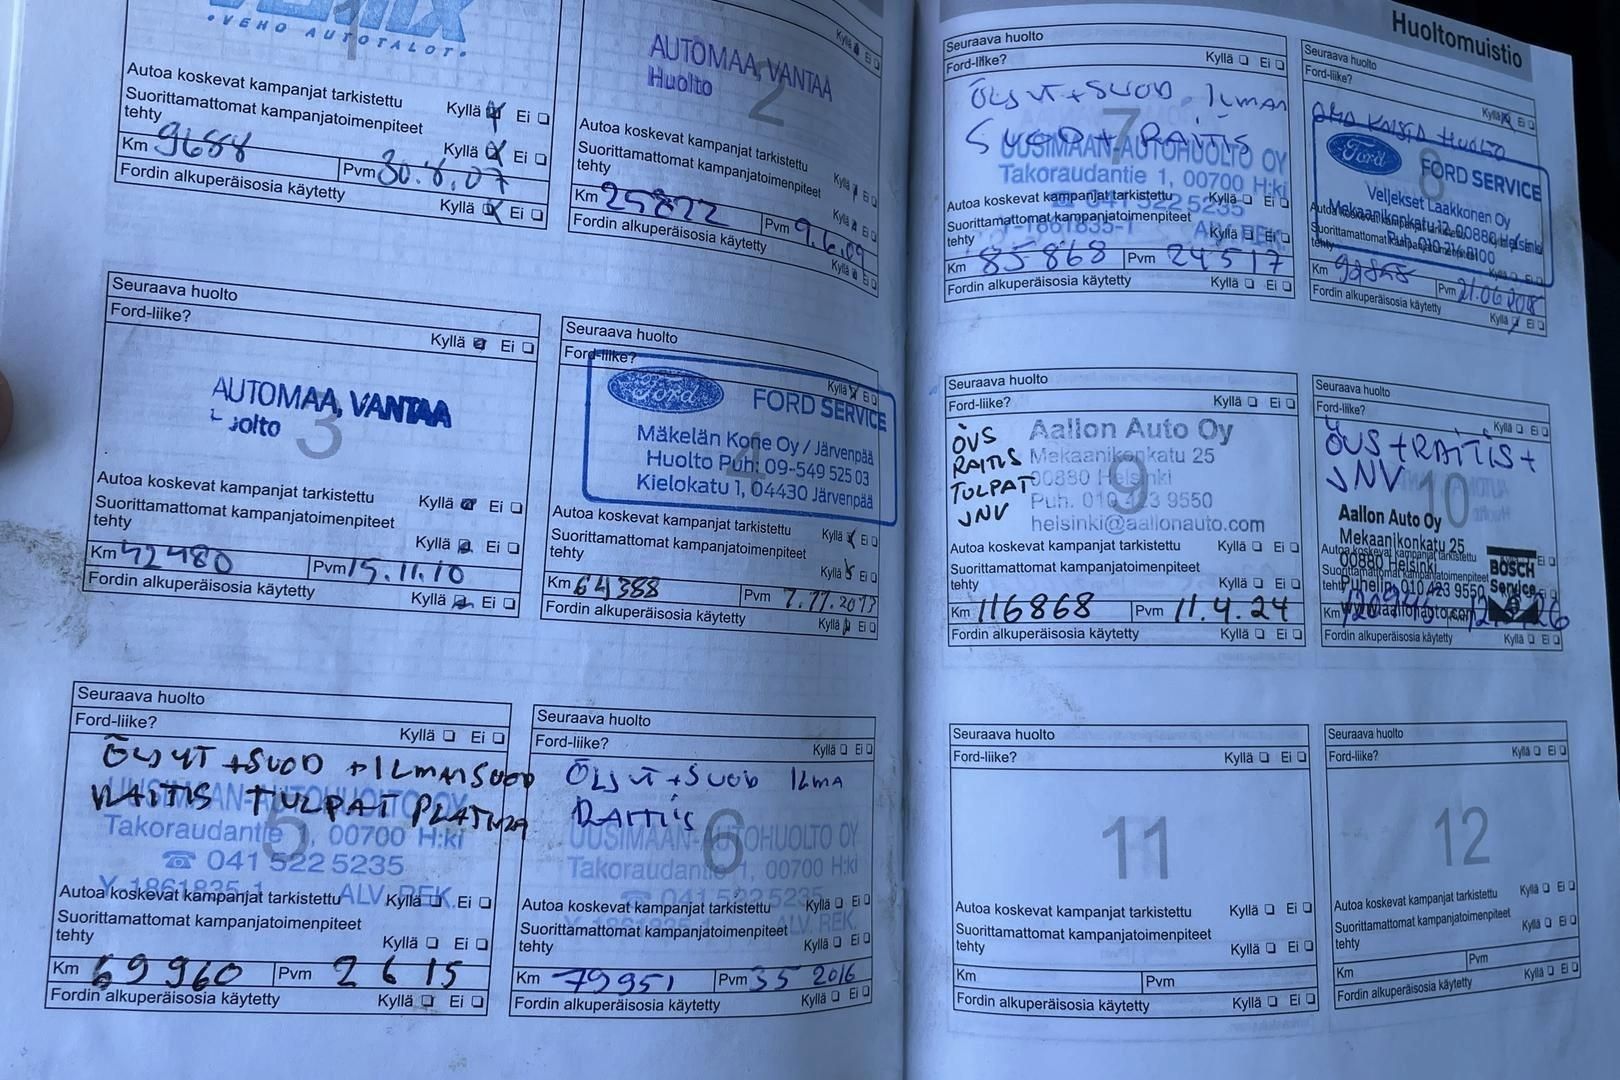 Huoltomuistio
1
•VEHO AUTOTALOT•
Autoa koskevat kampanjat tarkistettu
Kyllä Ei
Suorittamattomat kampanjatoimenpiteet
tehty
Kyllä Ei
Km 9688
Pvm 30.8.07
Fordin alkuperäisosia käytetty
Kyllä Ei
Kyllä Ei
AUTOMAA, VANTAA
Huolto
2
Autoa koskevat kampanjat tarkistettu
Kyllä Ei
Suorittamattomat kampanjatoimenpiteet
tehty
Kyllä Ei
Km 25822
Pvm 9.6.09
Fordin alkuperäisosia käytetty
Kyllä Ei
Seuraava huolto
Ford-liike?
Kyllä Ei
AUTOMAA, VANTAA
3
Autoa koskevat kampanjat tarkistettu
Kyllä Ei
Suorittamattomat kampanjatoimenpiteet
tehty
Kyllä Ei
Km 42480
Pvm 15.11.10
Fordin alkuperäisosia käytetty
Kyllä Ei
Seuraava huolto
Ford-liike?
Kyllä Ei
Ford FORD SERVICE
4
Mäkelän Kone Oy / Järvenpää
Huolto Puh. 09-549 525 03
Kielokatu 1, 04430 Järvenpää
Autoa koskevat kampanjat tarkistettu
Kyllä Ei
Suorittamattomat kampanjatoimenpiteet
tehty
Kyllä Ei
Km 64388
Pvm 7.11.2013
Fordin alkuperäisosia käytetty
Kyllä Ei
Seuraava huolto
Ford-liike?
Kyllä Ei
ÖLJYT + SUOD + ILMANSUOD
RAITIS TULPAT
UUSIMAAN-AUTOHUOLTO OY
5
Takoraudantie 1, 00700 H:ki
☎ 041 522 5235
Y-1861835-1 ALV. REK.
Autoa koskevat kampanjat tarkistettu
Kyllä Ei
Suorittamattomat kampanjatoimenpiteet
tehty
Kyllä Ei
Km 69960
Pvm 2 6 15
Fordin alkuperäisosia käytetty
Kyllä Ei
Seuraava huolto
Ford-liike?
Kyllä Ei
ÖLJYT + SUOD ILMA
RAITIS
UUSIMAAN-AUTOHUOLTO OY
6
Takoraudantie 1, 00700 H:ki
☎ 041 522 5235
Y-1861835-1 ALV. REK.
Autoa koskevat kampanjat tarkistettu
Kyllä Ei
Suorittamattomat kampanjatoimenpiteet
tehty
Kyllä Ei
Km 79951
Pvm 3 5 2016
Fordin alkuperäisosia käytetty
Kyllä Ei
Seuraava huolto
Ford-liike?
Kyllä Ei
ÖLJYT + SUOD. ILMAN
SUOD + RAITIS
7
UUSIMAAN-AUTOHUOLTO OY
Takoraudantie 1, 00700 H:ki
☎ 041 522 5235
Y-1861835-1 ALV. REK.
Autoa koskevat kampanjat tarkistettu
Kyllä Ei
Suorittamattomat kampanjatoimenpiteet
tehty
Kyllä Ei
Km 85868
Pvm 24 5 17
Fordin alkuperäisosia käytetty
Kyllä Ei
Seuraava huolto
Ford-liike?
Kyllä Ei
8
Ford FORD SERVICE
Veljekset Laakkonen Oy
Mekaanikonkatu 12, 00880 Helsinki
Autoa koskevat kampanjat tarkistettu
Suorittamattomat kampanjatoimenpiteet
tehty
Kyllä Ei
Km
Pvm 21.06.2018
Fordin alkuperäisosia käytetty
Kyllä Ei
Seuraava huolto
Ford-liike?
Kyllä Ei
ÖVS
RAITIS
TULPAT
JNV
Aallon Auto Oy
Mekaanikonkatu 25
9
00880 Helsinki
Puh. 010 423 9550
helsinki@aallonauto.com
Autoa koskevat kampanjat tarkistettu
Kyllä Ei
Suorittamattomat kampanjatoimenpiteet
tehty
Kyllä Ei
Km 116868
Pvm 11.4.24
Fordin alkuperäisosia käytetty
Kyllä Ei
Seuraava huolto
Ford-liike?
Kyllä Ei
ÖVS + RAITIS +
JNV
10
Aallon Auto Oy
Mekaanikonkatu 25
00880 Helsinki
Puhelin 010 423 9550
www.aallonauto.com
BOSCH
Service
Autoa koskevat kampanjat tarkistettu
Suorittamattomat kampanjatoimenpiteet
tehty
Km
Fordin alkuperäisosia käytetty
Kyllä Ei
Seuraava huolto
Ford-liike?
Kyllä Ei
11
Autoa koskevat kampanjat tarkistettu
Kyllä Ei
Suorittamattomat kampanjatoimenpiteet
tehty
Kyllä Ei
Km
Pvm
Fordin alkuperäisosia käytetty
Kyllä Ei
Seuraava huolto
Ford-liike?
Kyllä Ei
12
Autoa koskevat kampanjat tarkistettu
Kyllä Ei
Suorittamattomat kampanjatoimenpiteet
tehty
Kyllä Ei
Km
Pvm
Fordin alkuperäisosia käytetty
Kyllä Ei